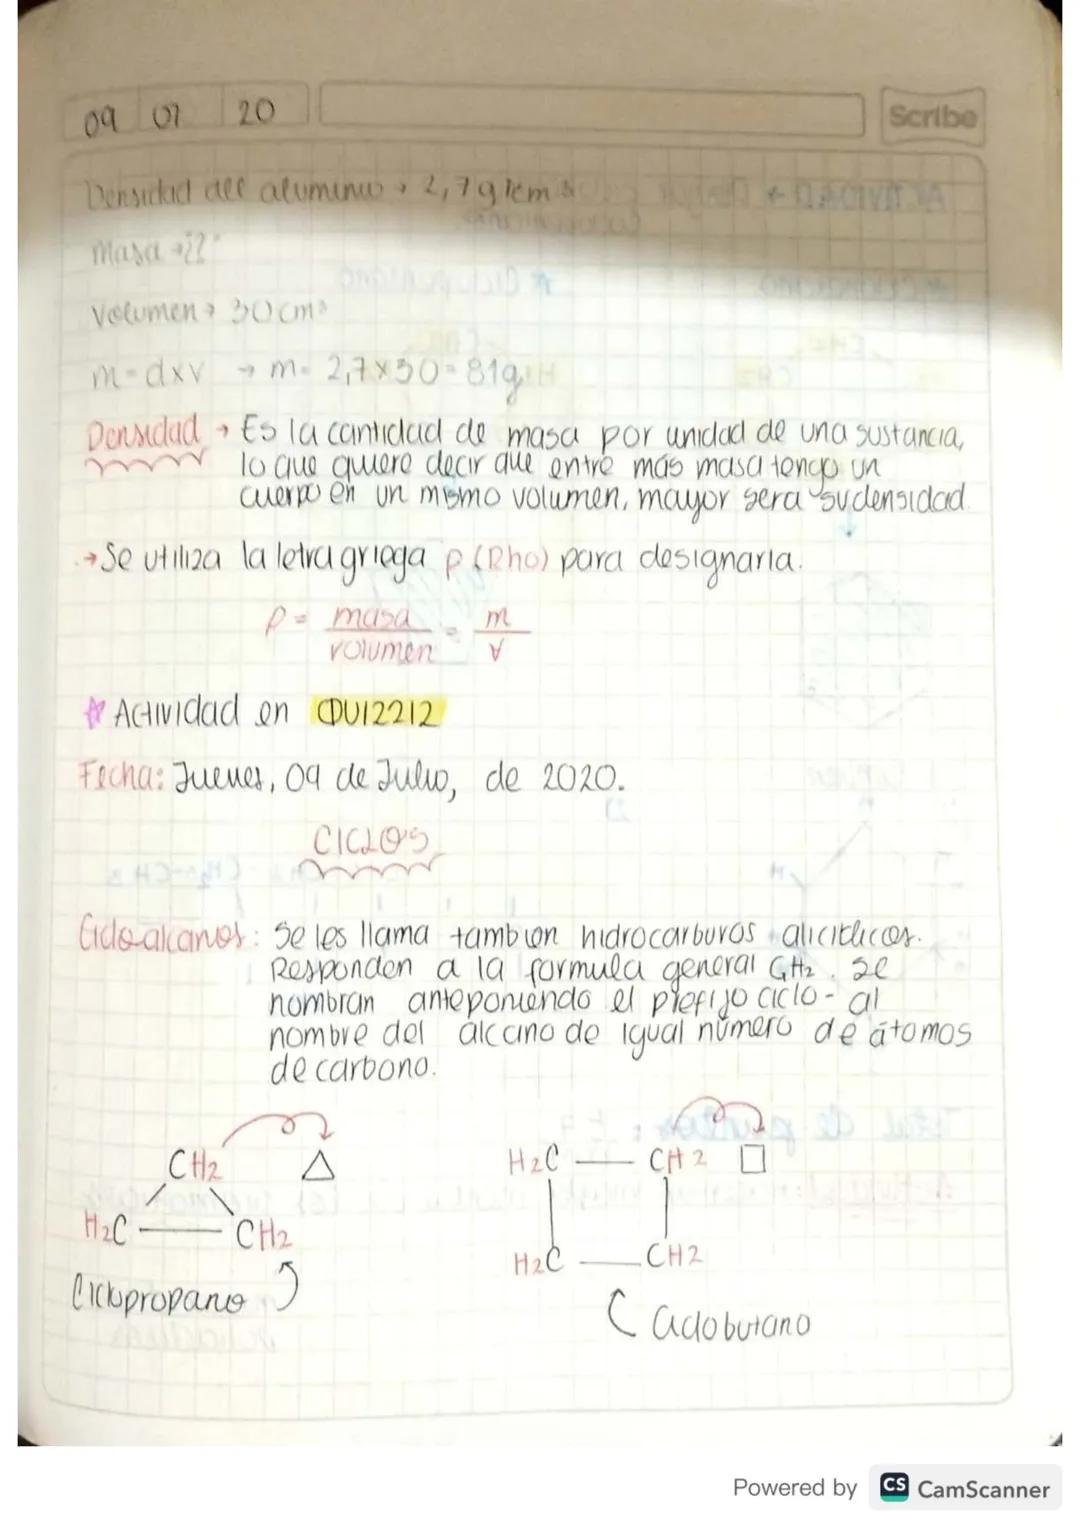 09 07 20
Scribe
Densidad del aluminio → 2,7 g/cm³
masa →¿?
Volumen → 30cm³
m=dxv → m= 2,7x30=81g
Densidad → Es la cantidad de masa por unidad de una sustancia,
lo que quiere decir que entre más masa tengo un
cuerpo en un mismo volumen, mayor sera su densidad.
→Se utiliza la letra griega ρ (Rho) para designarla.
ρ = masa/volumen = m/v
☆ Actividad en QUI2212
Fecha: Jueves, 09 de Julio, de 2020.
CICLOS
Cicloalcanos: Se les llama tambien hidrocarburos aliciclicos.
Responden a la formula general CnH2. Se
nombran anteponiendo el prefijo ciclo- al
nombre del alcano de igual número de átomos
de carbono.
CH2 △
H2C — CH2
Ciclopropano
H2C — CH2 □
H2C — CH2
Ciclobutano
Powered by CS CamScanner